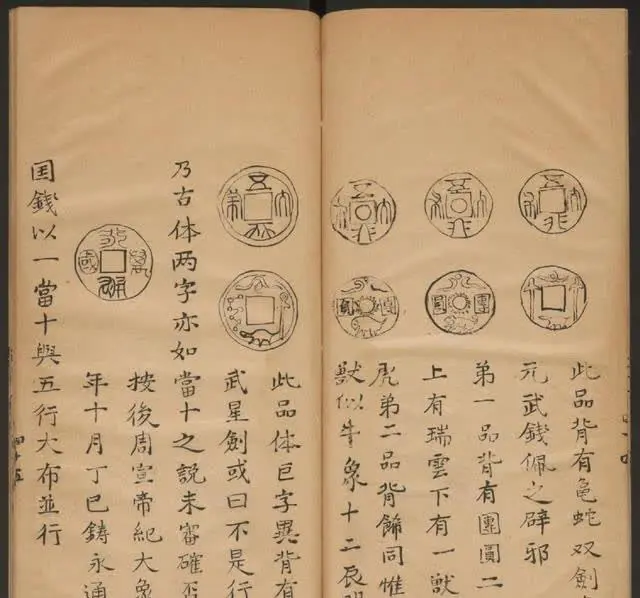 五行大布
五行大布
五行大布
團圓
團圓
此品背有龜蛇双劍
元武錢佩之辟邪
第一品背有團圓二
上有瑞雲下有一獸
虎第二品背飾同惟
獸似牛象十二辰
五行大布
此品体巨字異背有
武星劍或曰不是行
乃古体两字亦如當十之說未審確否
永通萬國
按後周宣帝紀大象
年十月丁巳鑄永通
囯錢以一當十與五行大布並行